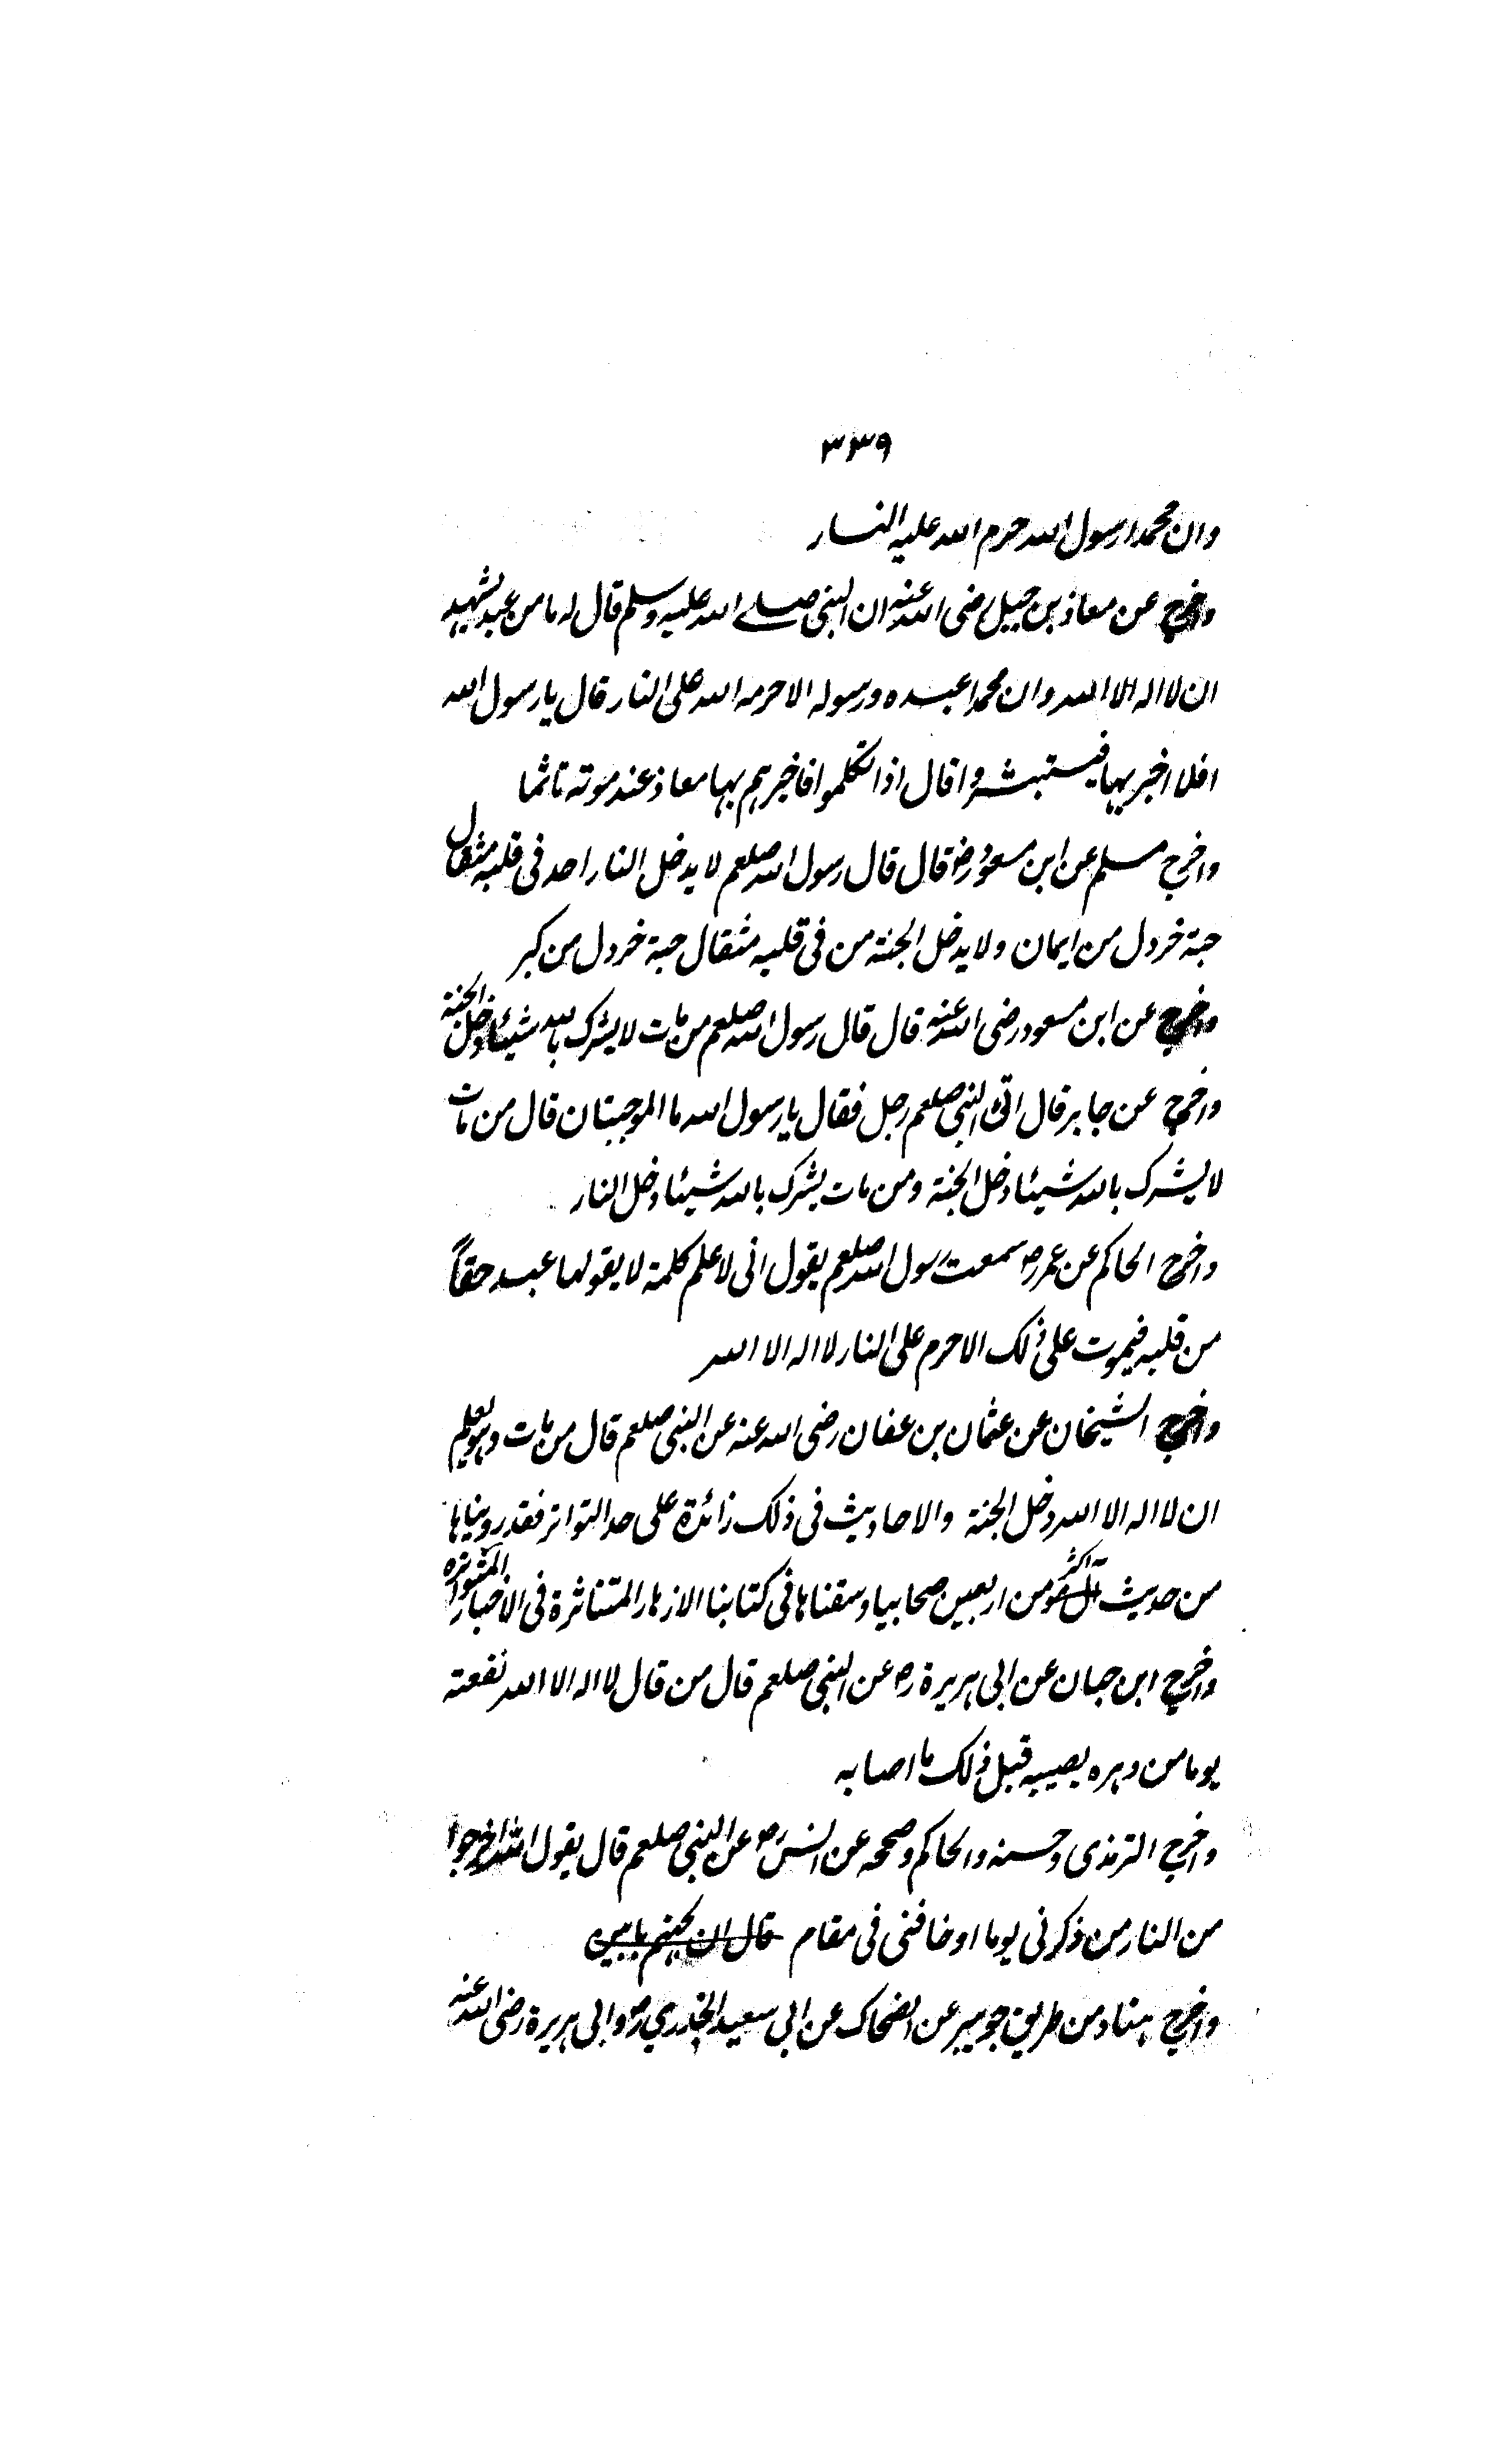 ٣٣٩
وان محمدا رسول الله حرم الله عليه النار
واخرج عن معاذ بن جبل رضى الله عنه ان النبى صلے الله عليه وسلم قال له ما من عبد يشهد
ان لا اله الا الله وان محمدا عبده ورسوله الا حرمه الله على النار قال يا رسول الله
افلا اخبر بها فيستبشروا قال اذا تكلموا فاخبرهم بها معاذ عند موته تاثما
واخرج مسلم عن ابن مسعود رض قال قال رسول الله صلعم لا يدخل النار احد فى قلبه مثقال
حبة خردل من ايمان ولا يدخل الجنة من فى قلبه مثقال حبة خردل من كبر
واخرج عن ابن مسعود رضى الله عنه قال قال رسول الله صلعم من مات لا يشرك بالله شيئا دخل الجنة
واخرج عن جابر قال اتى النبى صلعم رجل فقال يا رسول الله ما الموجبتان قال من مات
لا يشرك بالله شيئا دخل الجنة ومن مات يشرك بالله شيئا دخل النار
واخرج الحاكم عن عمر رض سمعت رسول الله صلعم يقول انى لاعلم كلمة لا يقولها عبد حقاً
من قلبه فيموت على ذلك الا حرم على النار لا اله الا الله
واخرج الشيخان عن عثمان بن عفان رضى الله عنه عن النبى صلعم قال من مات وهو يعلم
ان لا اله الا الله دخل الجنة والاحاديث فى ذلك زائدة على حد التواتر فقد رويناها
من حديث اكثر من اربعين صحابيا وسقناها فى كتابنا الازهار المتناثرة فى الاخبار المتواترة
واخرج ابن حبان عن ابى هريرة رض عن النبى صلعم قال من قال لا اله الا الله نفعته
يوما من دهره يصيبه قبل ذلك ما اصابه
واخرج الترمذى وحسنه والحاكم وصححه عن انس رض عن النبى صلعم قال يقول الله اخرجوا
من النار من ذكرنى يوما او خافنى فى مقام قال ان لجهنم
واخرج هناد من طريق جويبر عن الضحاك عن ابى سعيد الخدري رض وابى هريرة رضى الله عنه